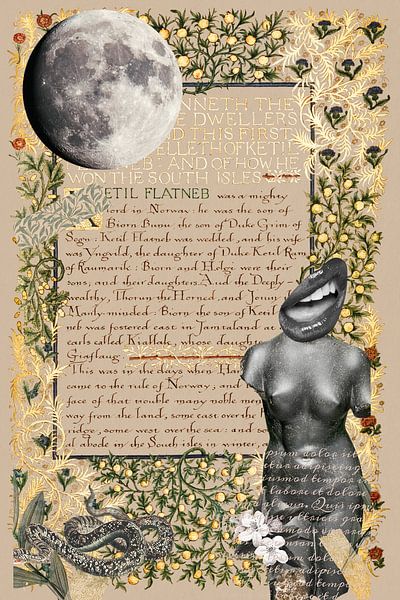 NNETH THE
E DWELLERS
D THIS FIRST
ELLETH OF KETIL
EB: AND OF HOW HE
WON THE SOUTH ISLES
ETIL FLATNEB was a mighty
lord in Norway: he was the son of
Biorn Bunu the son of Duke Grim of
Sogn: Ketil Flatneb was wedded, and his wife
was Yngvald, the daughter of Duke Ketil Ram
of Raumarik: Biorn and Helgi were their
sons, and their daughters Aud the Deeply-
wealthy, Thorun the Horned, and
Manly-minded: Biorn the son of Ketil
neb was fostered east in Jamtaland at
earls called Kiallak, whose daughter
Giaflaug
This was in the days when Har
came to the rule of Norway; and
face of that trouble many noble men
way from the land, some east over the
ridge, some west over the sea: and so
al abode in the South isles in winter,
ipsum dolor sit
etur adipiscing
eiusmod tempor
labore et dolore
aliqua. Quis ipsu
ultrices gra
commodo
dolor
adipis
tempo